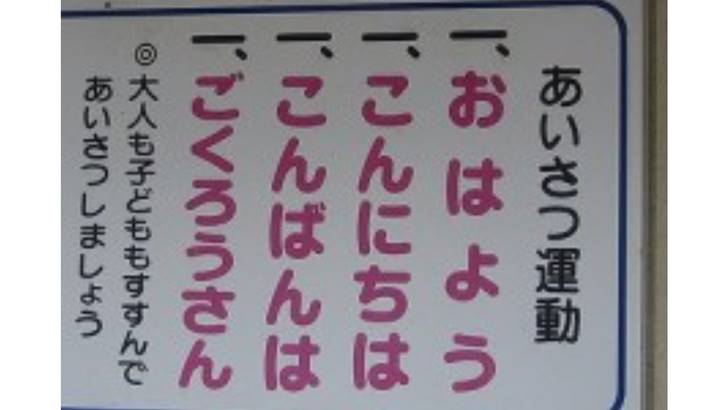 あいさつ運動
一、おはよう
一、こんにちは
一、こんばんは
一、ごくろうさん
◎大人も子どももすすんで
あいさつしましょう